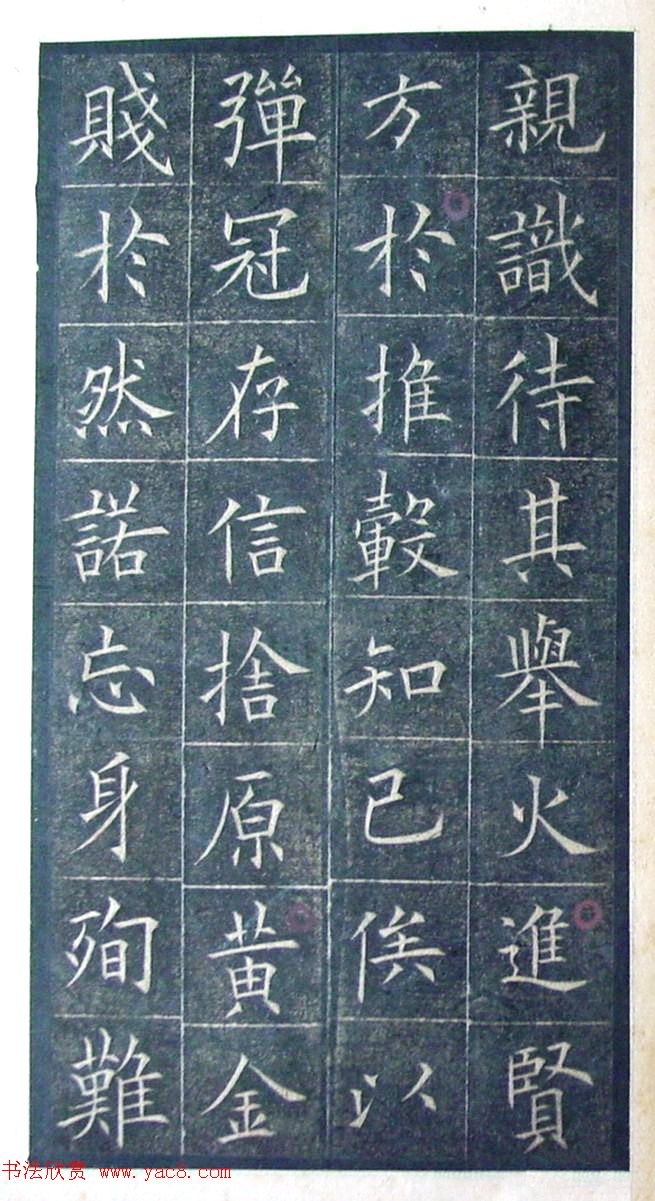 親識待其舉火進賢
方於推轂知己俟以
彈冠存信捨原黃金
賤於然諾忘身殉難
书法欣赏 www.yac8.com